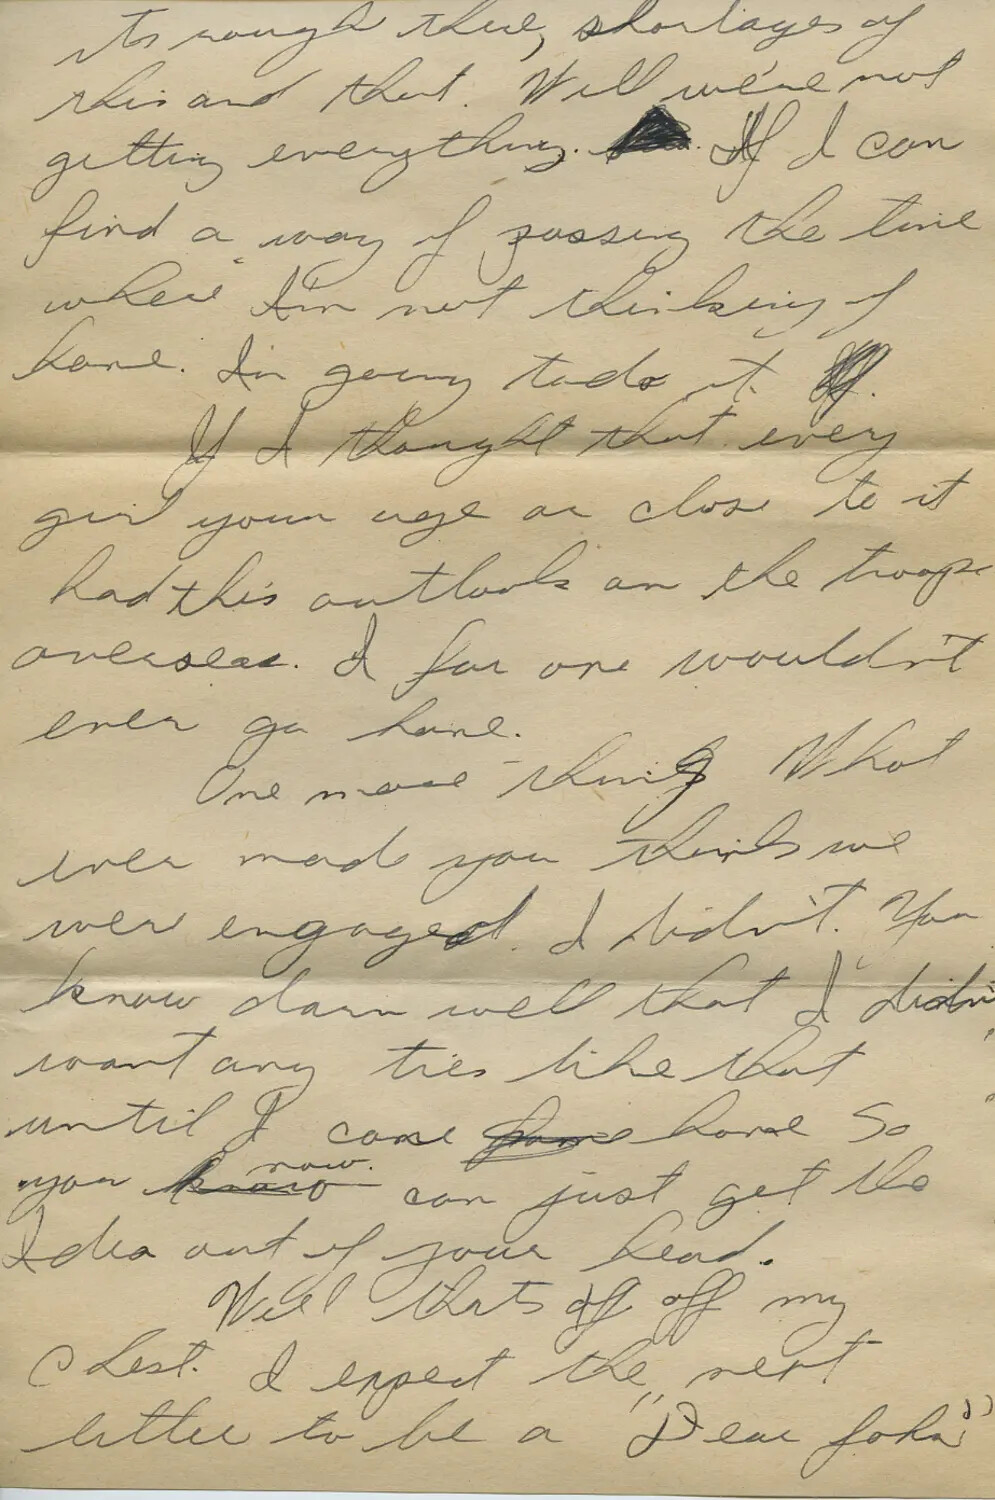 its rough there, shortages of
this and that. Well we're not
getting everything. If I can
find a way of passing the time
where I'm not thinking of
home. I'm going to do it.
If I thought that every
girl your age or close to it
had this outlook on the troops
overseas. I for one wouldn't
ever go home.
One more thing What
ever mad you think we
wer engaged. I didn't. You
know darn well that I didn't
want any ties like that
until I come home home So
you know now. can just get the
Idea out of your head.
Well thats off off my
Chest. I expect the next
letter to be a "Dear John"